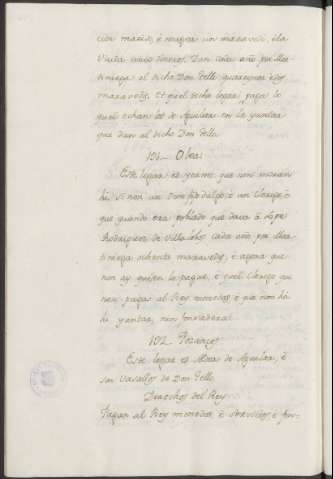 cion marzo, é nuegra un maravedi, é la
Viuda cinco dineros. Dan cada año por Mar-
tiniega al dicho Don Tello quarenta é dos
maravedis. Et que el dicho logar paga lo
que l echan los de Aguilar en la yantar
que dan al dicho Don Tello.
191.. Olea
Este logar es yermo que non moran
hi si non un Ome fijodalgo, é un Clerigo, é
que quando era poblado que dava á Lope
Rodriguez de Villalobos cada año por Mar-
tiniega ochenta maravedis, é agora que
non ay quien la pague, é quel Clerigo que
non pagan al Rey servicios, é que non há
hi yantar, nin fonsadera.
192.
Este logar es Aldea de Aguilar, é
son vasallos de Don Tello.
Derechos del Rey
Pagan al Rey monedas, é servicios, é fon-